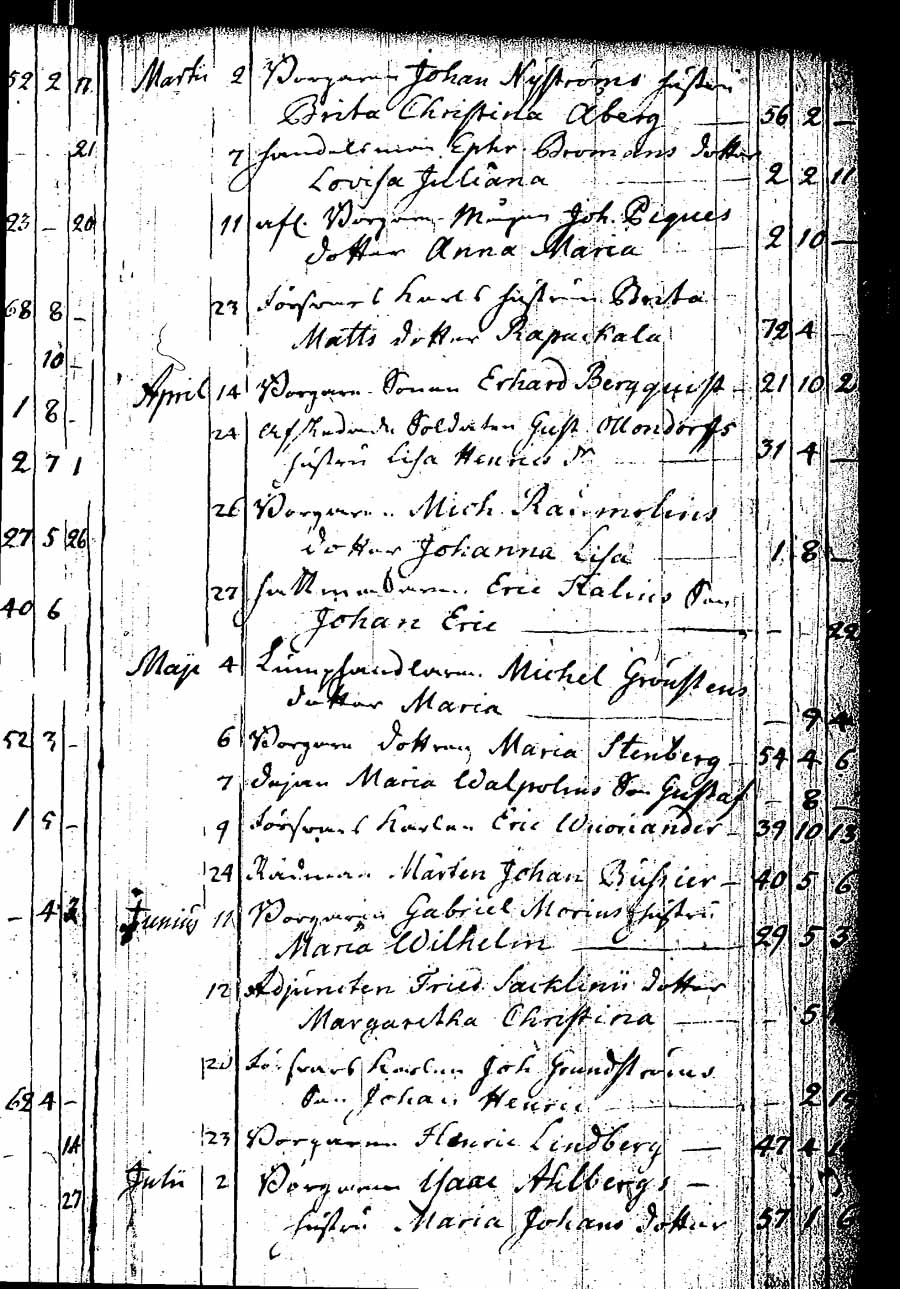 52 2 11 Martii 2 Borgaren Johan Nyströms hustru
Brita Christina Åberg 56 2 —
21 7 handelsman Ephr. Bromans dotter
Lovisa Juliana 2 2 11
23 — 20 11 afl. Borgaren Joh. Piques
dotter Anna Maria 2 10 —
68 8 — 23 Försvars Karls hustru Brita
Matts dotter Rapackala 72 4 —
10 —
April 14 Borgare Sonen Erhard Bergquist — 21 10 2
1 8 — 24 Afskedade Soldaten Gust. Mondorffs
2 7 1 hustru Lisa Henrics dr 31 4 —
26 Borgaren Mich. Raumolins
27 5 26 dotter Johanna Lisa 1 8 —
27 hattmakaren Eric Kalius Son
40 6 Johan Eric — — 22
Maji 4 Lumphandlaren Michel Grönstens
dotter Maria — 9 4
52 3 — 6 Borgare dottren Maria Stenberg 54 4 6
7 Maria Walpolius Son Gustaf — 8 —
1 5 — 9 Försvars Karlen Eric Wuoriander — 39 10 13
24 Rådman Mårten Johan Bussier — 40 5 6
— 4 2 Junius 11 Borgaren Gabriel Morins hustru
Maria Wilhelm — 29 5 3
12 Adjuncten Fried. Sacklinii dotter
Margaretha Christina — — 5
20 Försvars Karlen Joh. Grundströms
62 4 — Son Johan Henric — 2
14 23 Borgaren Henric Lindberg — 47 4
Julii 2 Borgaren Isaac Ahlbergs —
27 hustru Maria Johans dotter 57 1 6